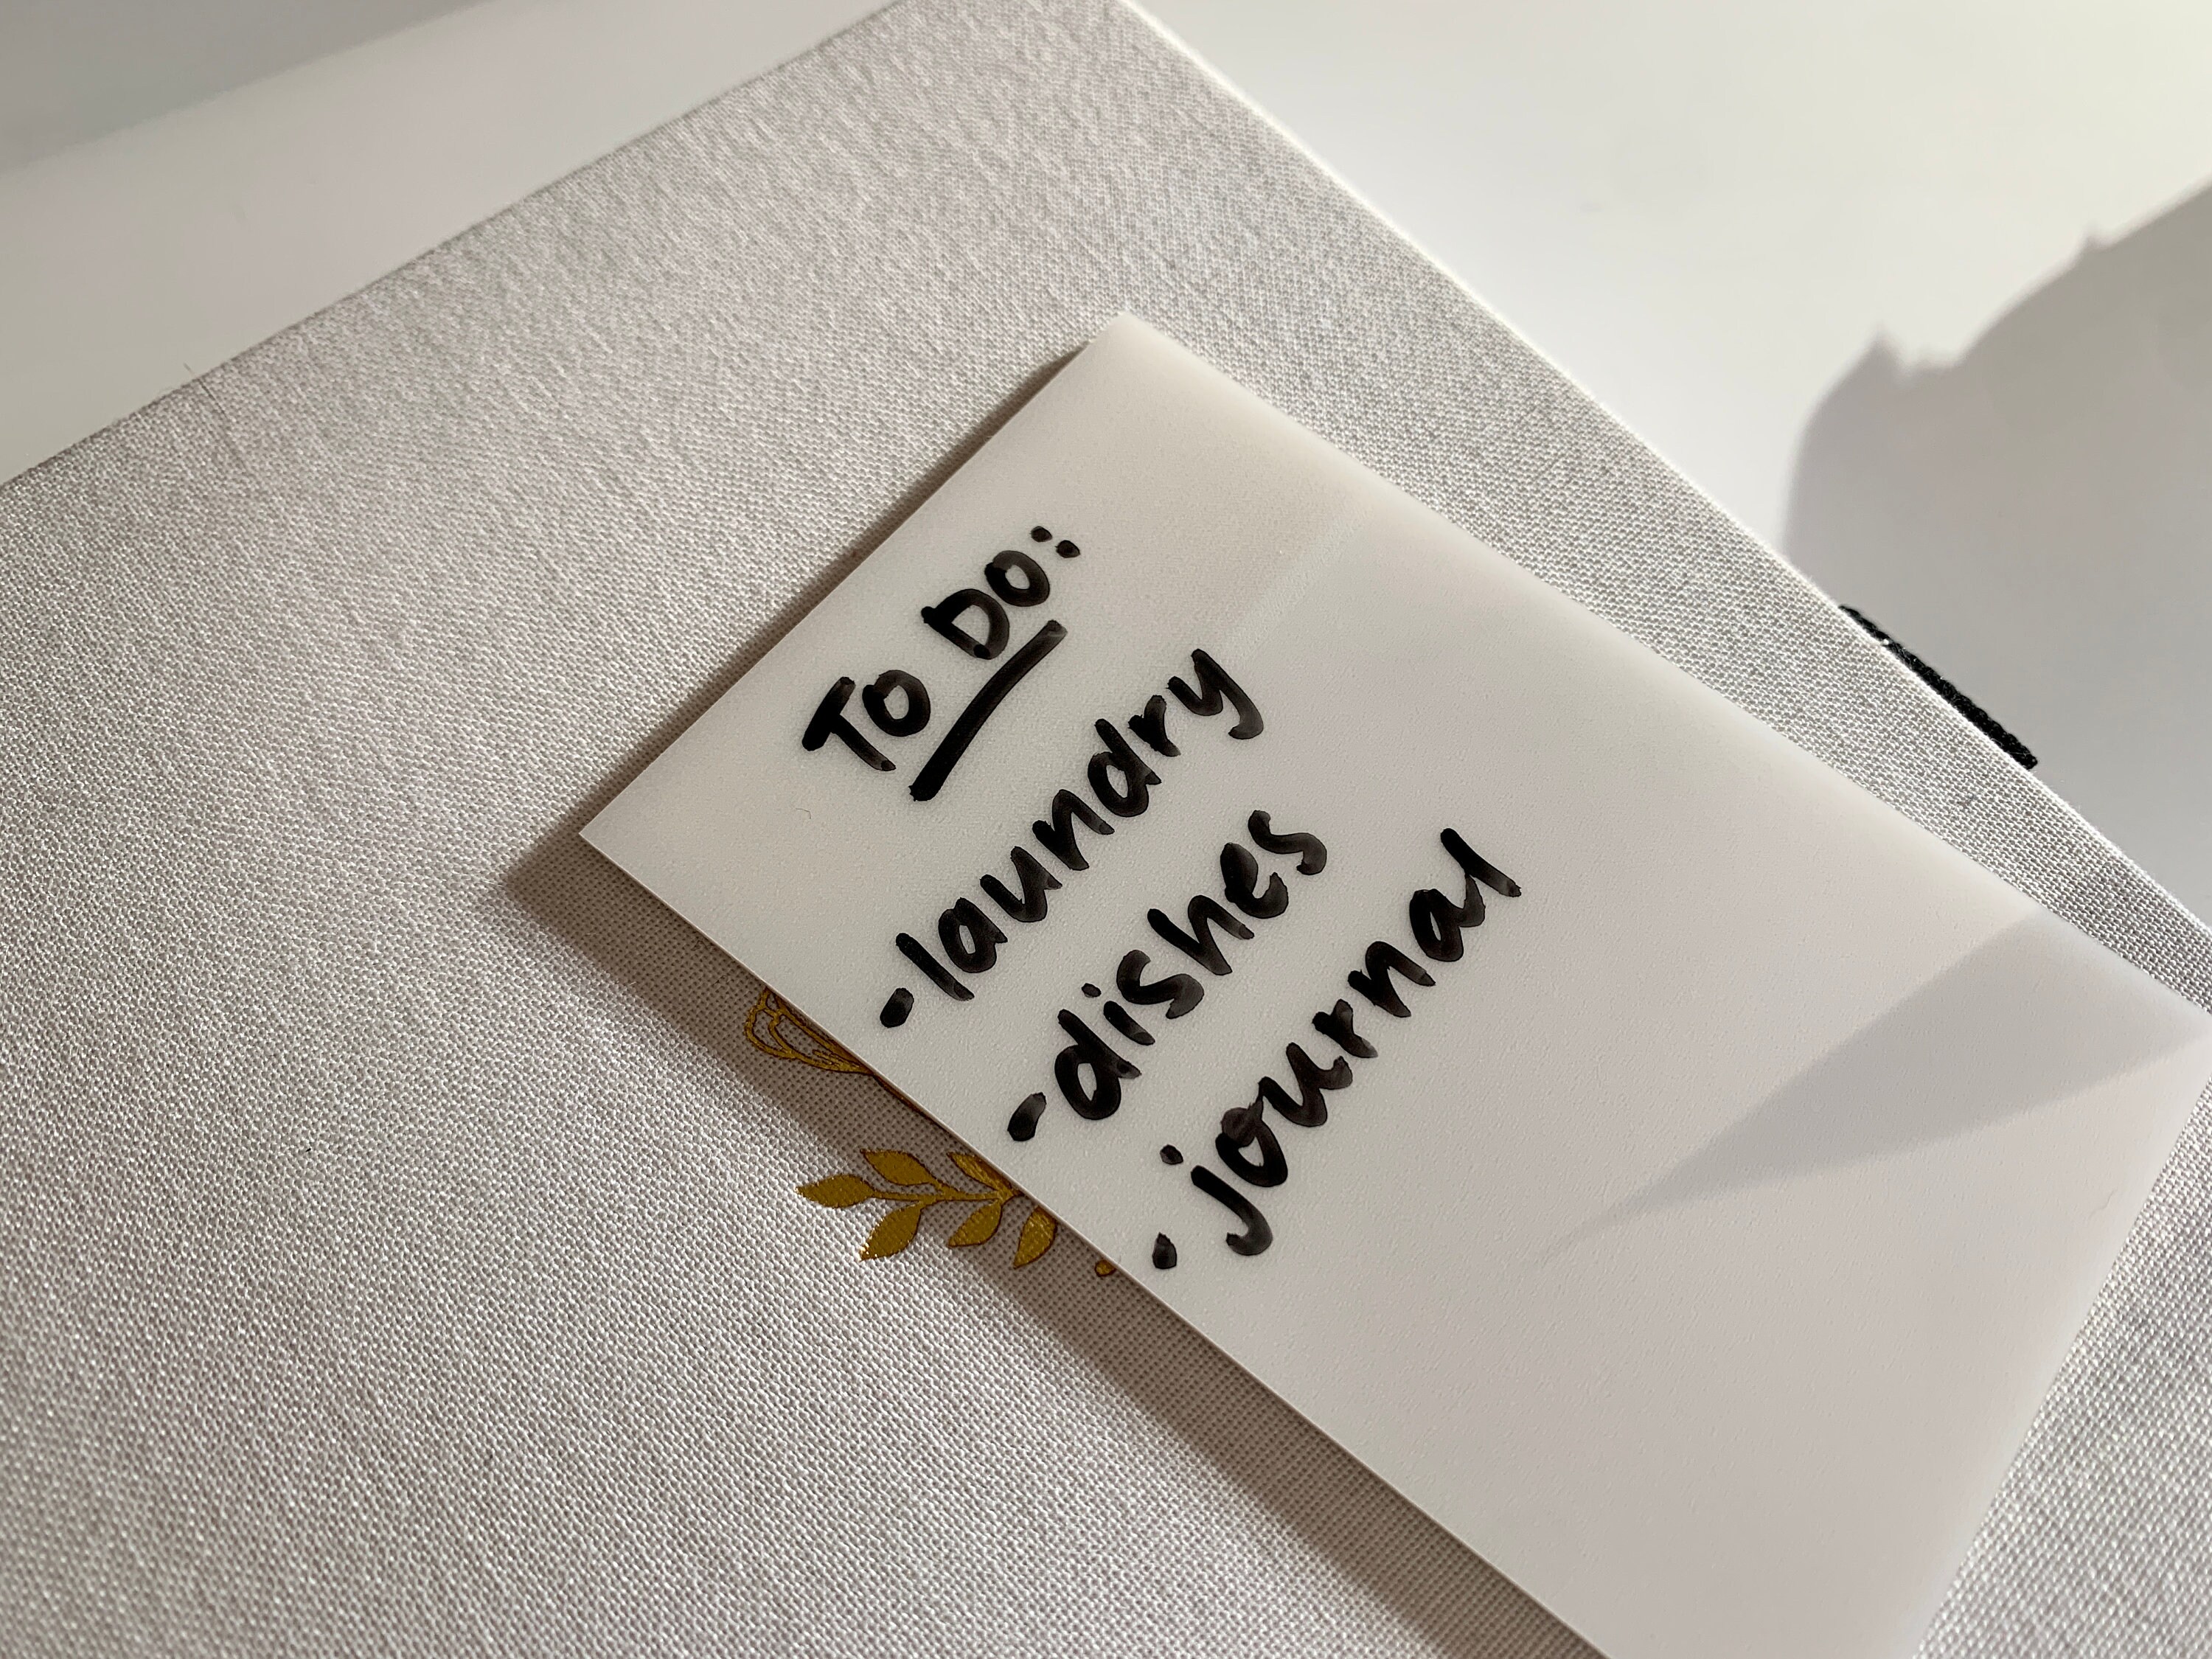 To Do:
- laundry
- dishes
- journal